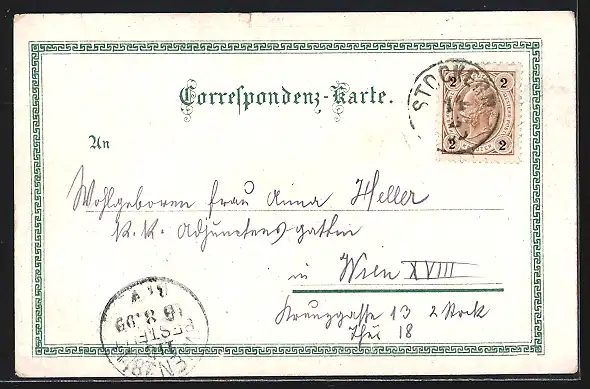 Correspondenz-Karte.
STOCKERAU
2 2
2 2
An
Wohlgeboren Frau Anna Heller
K. K. Adjunctens gattin
in Wien XVIII
Kreuzgasse 13 2 Stock
Thür 18
16 8.99
BESTELLT
WIEN